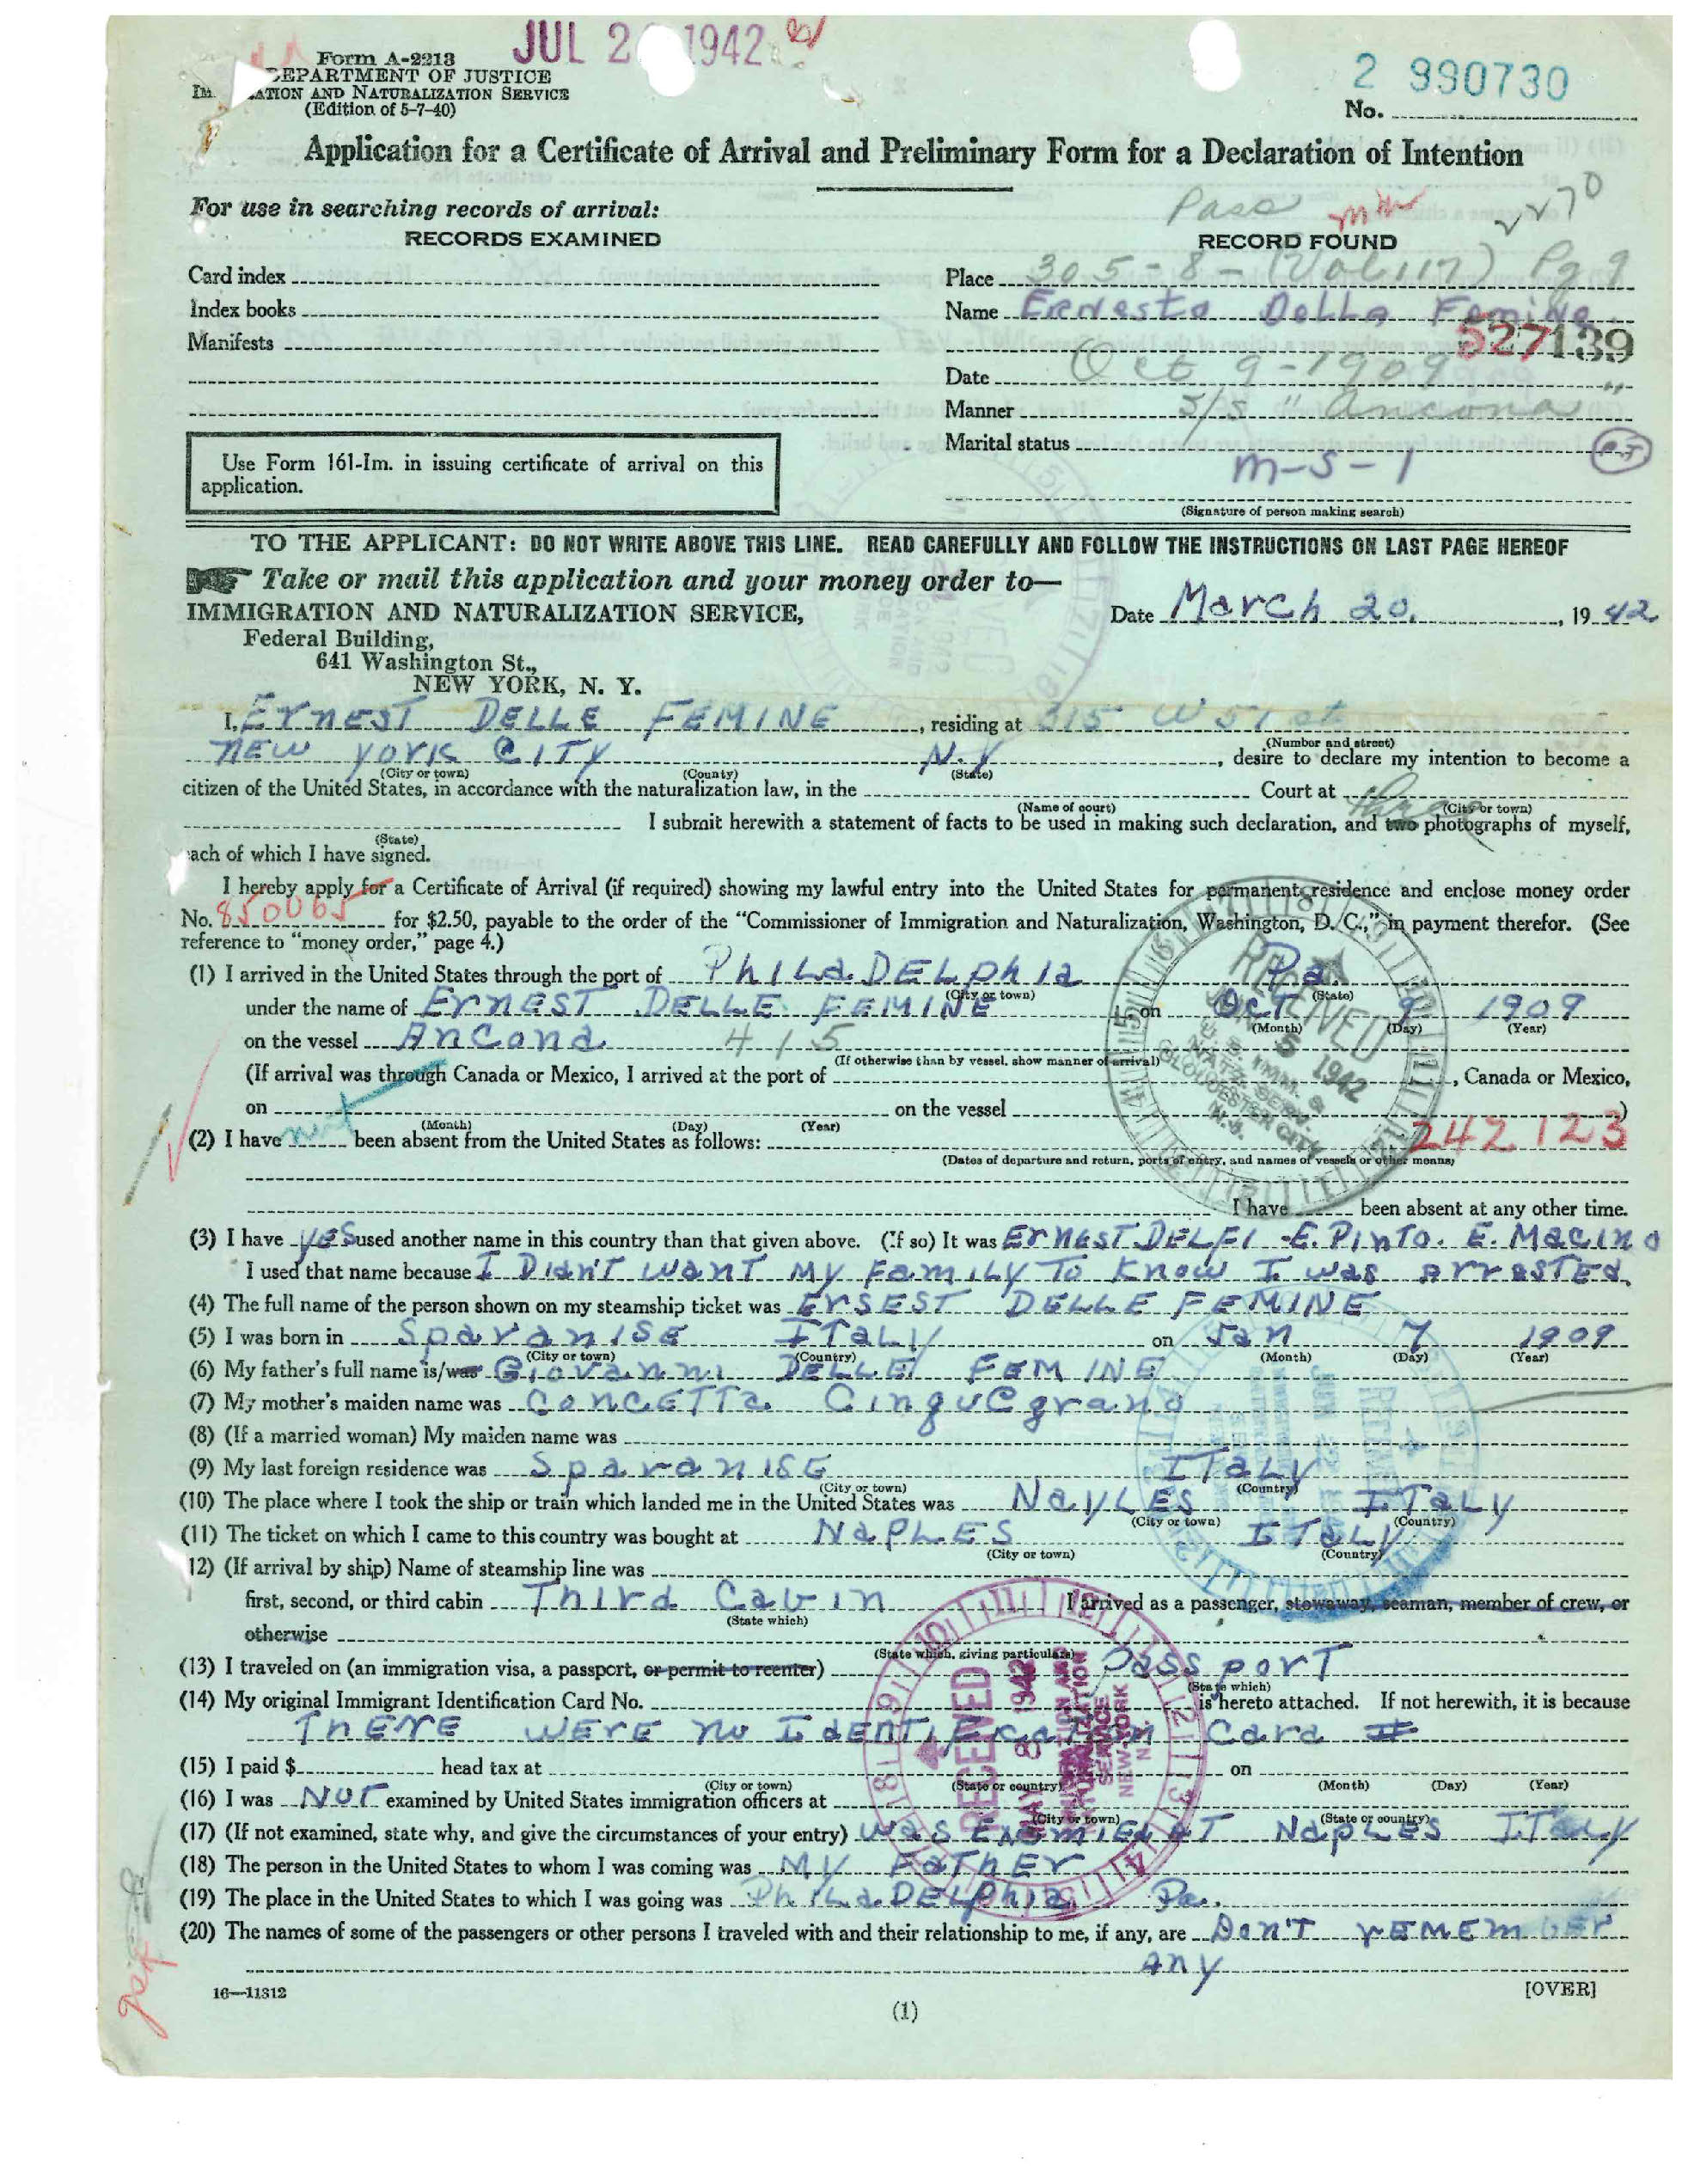 JUL 2 1942
Form A-2213
DEPARTMENT OF JUSTICE
ATION AND NATURALIZATION SERVICE
(Edition of 5-7-40)
2 990730
No.
Application for a Certificate of Arrival and Preliminary Form for a Declaration of Intention
For use in searching records of arrival:
Pass
RECORDS EXAMINED
RECORD FOUND
Card index
Place 305-8-(Vol 117) Pg 9
Index books
Name Ernesto Della Femine
Manifests
527139
Date Oct 9-1909
Manner S/S "Ancona"
Marital status m-s-1
Use Form 161-Im. in issuing certificate of arrival on this
application.
(Signature of person making search)
TO THE APPLICANT: DO NOT WRITE ABOVE THIS LINE. READ CAREFULLY AND FOLLOW THE INSTRUCTIONS ON LAST PAGE HEREOF
Take or mail this application and your money order to—
IMMIGRATION AND NATURALIZATION SERVICE,
Date March 20, 1942
Federal Building,
641 Washington St.,
NEW YORK, N. Y.
I, ErnEST DELLE FEMINE, residing at 315 W 51 st
(Number and street)
NEW YORK CITY N.Y, desire to declare my intention to become a
(City or town) (County) (State)
citizen of the United States, in accordance with the naturalization law, in the Court at
(Name of court) (City or town)
I submit herewith a statement of facts to be used in making such declaration, and two three photographs of myself,
(State)
each of which I have signed.
I hereby apply for a Certificate of Arrival (if required) showing my lawful entry into the United States for permanent residence and enclose money order
No. 850065 for $2.50, payable to the order of the "Commissioner of Immigration and Naturalization, Washington, D. C.," in payment therefor. (See
reference to "money order," page 4.)
(1) I arrived in the United States through the port of PhiLaDELphia Pa.
(City or town) (State)
under the name of ErNEST DELLE FEMINE on OcT 9 1909
(Month) (Day) (Year)
on the vessel Ancona 415
(If otherwise than by vessel, show manner of arrival)
(If arrival was through Canada or Mexico, I arrived at the port of , Canada or Mexico,
on on the vessel )
(Month) (Day) (Year)
RECEIVED
JUN 5 1942
U. S. IMM. &
NATZ. SERV.
GLOUCESTER CITY
N.J.
(2) I have not been absent from the United States as follows: 242123
(Dates of departure and return, ports of entry, and names of vessels or other means)
I have been absent at any other time.
(3) I have yES used another name in this country than that given above. (If so) It was ErNEST DELFI - E. PiNTO. E. MaciNo
I used that name because I Didn'T WanT My FamiLy To Know I was ArrESTEd.
(4) The full name of the person shown on my steamship ticket was ErSEST DELLE FEMINE
(5) I was born in SparaniSE ITaLy on Jan 7 1909
(City or town) (Country) (Month) (Day) (Year)
(6) My father's full name is/was Giovanni DELLE FEMINE
(7) My mother's maiden name was ConcETTa CinquEgrano
(8) (If a married woman) My maiden name was
(9) My last foreign residence was SparaniSE ITaLy
(City or town) (Country)
(10) The place where I took the ship or train which landed me in the United States was NaYLES ITaLy
(City or town) (Country)
(11) The ticket on which I came to this country was bought at NaPLES ITaLy
(City or town) (Country)
12) (If arrival by ship) Name of steamship line was
first, second, or third cabin Third Cabin I arrived as a passenger, stowaway, seaman, member of crew, or
(State which)
otherwise
(State which, giving particulars)
(13) I traveled on (an immigration visa, a passport, or permit to reenter) passporT
(State which)
(14) My original Immigrant Identification Card No. is hereto attached. If not herewith, it is because
ThErE WErE no IdENTiFicaTion Card #
RECEIVED
MAY 8 1942
(15) I paid $ head tax at on
(City or town) (State or country) (Month) (Day) (Year)
(16) I was NoT examined by United States immigration officers at
(City or town) (State or country)
(17) (If not examined, state why, and give the circumstances of your entry) WaS ExamiEd AT NapLES ITaLy
(18) The person in the United States to whom I was coming was My FaThEr
(19) The place in the United States to which I was going was PhiLaDELphia Pa.
(20) The names of some of the passengers or other persons I traveled with and their relationship to me, if any, are Don'T rEMEmbEr
any
16—11312
[OVER]
(1)